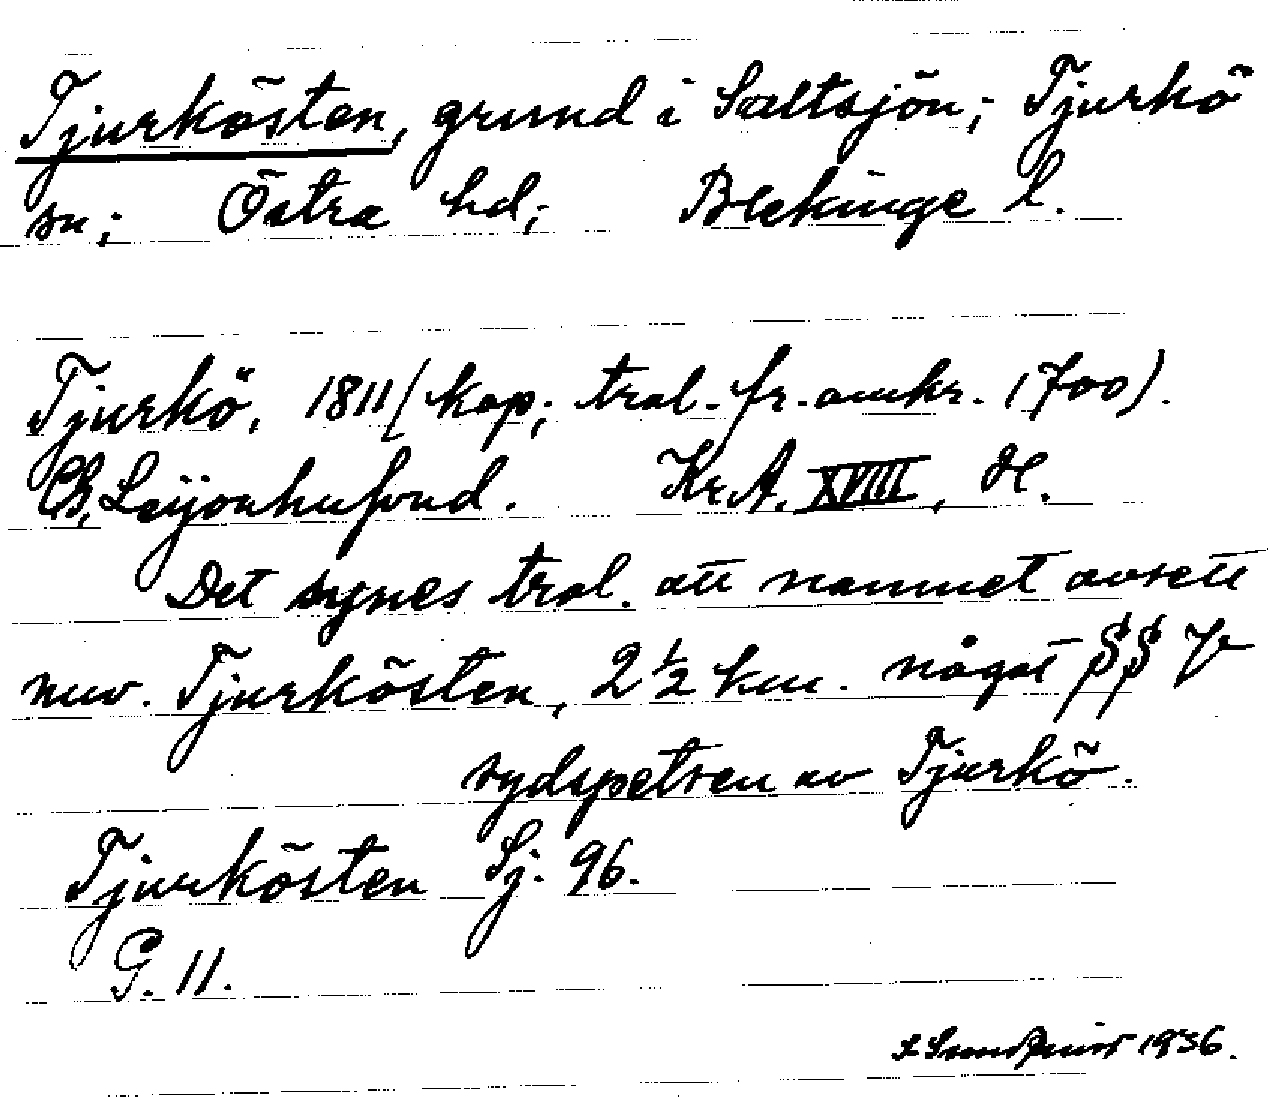 Tjurkösten, grund i Saltsjön; Tjurkö
sn; Östra hd; Blekinge l.
Tjurkö, 1811 (kop; trol. fr. omkr. 1700).
Leijonhufvud. Kr.A. XVIII,
Det synes trol. att namnet avsett
nuv. Tjurkösten, 2 1/2 km. något
sydspetsen av Tjurkö.
Tjurkösten Sj. 96.
G. 11.
1936.